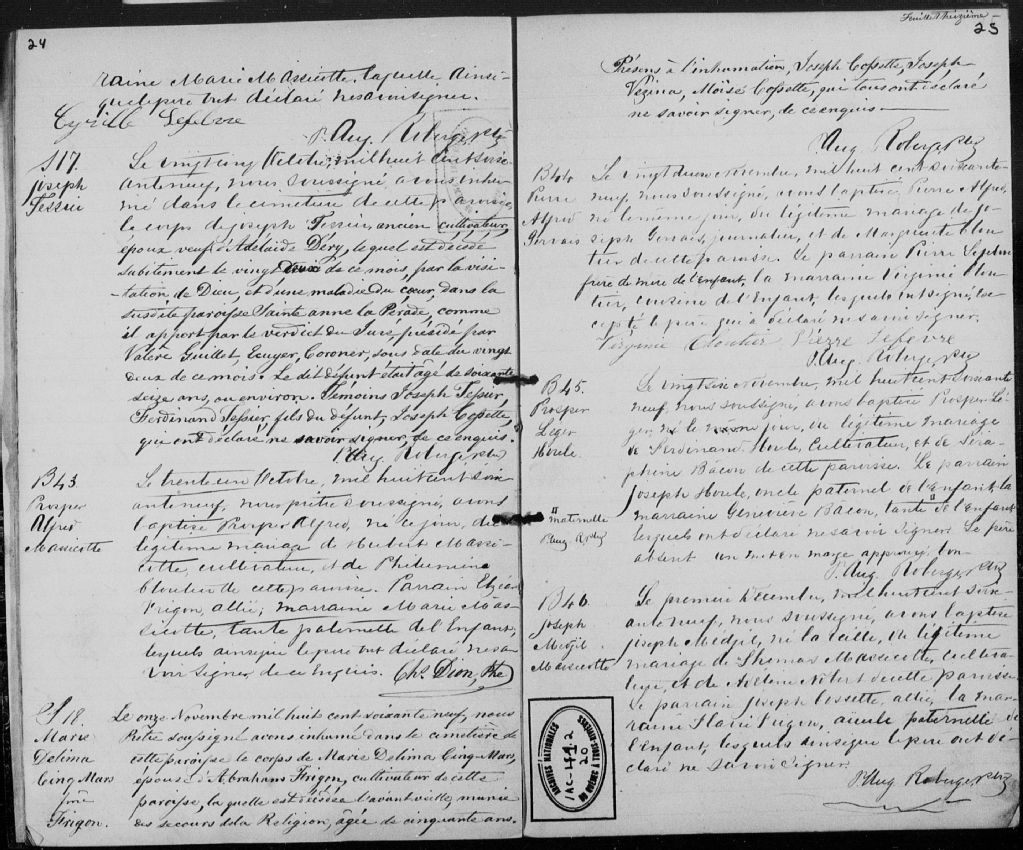 24
raine Marie Massicotte, laquelle ainsi
que le père ont déclaré ne savoir signer.
Cyrille Lefebvre
P. Aug. Roberge, ptre
S 17.
Joseph
Tessier
Le vingt cinq Octobre, mil huit cent soix-
ante neuf, nous soussigné, avons inhu-
mé dans le cimetière de cette paroisse,
le corps de Joseph Tessier, ancien cultivateur,
epoux veuf d'Adelaide Déry, lequel est décédé
subitement le vingt deux de ce mois, par la visi-
tation de Dieu, et d'une maladie du cœur, dans la
susdite paroisse Sainte Anne la Pérade, comme
il appert par le verdict du Juré, présidé par
Valère Guillet, Ecuyer, Coroner, sous date du vingt
deux de ce mois. Le dit défunt était âgé de soixante
seize ans, ou environ. Témoins Joseph Tessier,
Ferdinand Tessier, fils du défunt, Joseph Cossette,
qui ont déclaré ne savoir signer, de ce enquis.
P. Aug. Roberge, ptre
B 43
Prosper
Alfred
Massicotte
Le trente un Octobre, mil huit cent soix-
ante neuf, nous prêtre soussigné, avons
baptisé Prosper Alfred, né ce jour, du
légitime mariage de Hubert Massi-
cotte, cultivateur, et de Philumène
Cloutier de cette paroisse. Parrain Elzéar
Frigon, allié; marraine Marie Mas-
sicotte, tante paternelle de l'Enfant,
lesquels ainsi que le père ont déclaré ne sa-
voir signer, de ce enquis. Chs Dion, Ptre
S 18.
Marie
Delima
Cinq Mars
fme
Frigon.
Le onze Novembre mil huit cent soixante neuf, nous
Prêtre soussigné avons inhumé dans le cimetière de
cette paroisse le corps de Marie Delima Cinq-Mars,
epouse d'Abraham Frigon, cultivateur de cette
paroisse, la quelle est décédée l'avant veille, munie
des secours de la Religion, âgée de cinquante ans.
Feuillet treizième
25
Présens à l'inhumation, Joseph Cossette, Joseph
Vezina, Moïse Cossette, qui tous ont déclaré
ne savoir signer, de ce enquis.
P. Aug. Roberge, ptre
B 44
Pierre
Alfred
Gervais
Le vingt deux novembre, mil huit cent soixante
neuf, nous soussigné, avons baptisé Pierre Alfred,
né le même jour, du légitime mariage de Jo-
seph Gervais, journalier, et de Marguerite Clou-
tier de cette paroisse. Le parrain Pierre
frère de mère de l'Enfant, la marraine Virginie Clou-
tier, cousine de l'Enfant, lesquels ont signé, ex-
cepté le père qui a déclaré ne savoir signer.
Virginie Cloutier Pierre Lefebvre
P. Aug. Roberge, ptre
B 45.
Prosper
Léger
Houle
Le vingt six novembre, mil huit cent soixante
neuf, nous soussigné, avons baptisé Prosper Lé-
ger, né le jour, du légitime mariage
de Ferdinand Houle, Cultivateur, et de Séra-
phine Bacon de cette paroisse. Le parrain
Joseph Houle, oncle paternel de l'Enfant, la
marraine Genevieve Bacon, tante " de l'Enfant
lesquels ont déclaré ne savoir signer. Le père
absent un mot en marge approuvé bon
" maternelle
P. Aug R. ptre
P. Aug. Roberge, ptre
B 46
Joseph
Medjil
Massicotte
Le premier Décembre, mil huit cent soix-
ante neuf, nous soussigné, avons baptisé
Joseph Medjil, né la veille, du légitime
mariage de Thomas Massicotte, cultiva-
teur, et de Hélène Nobert de cette paroisse.
Le parrain Joseph Cossette, allié, la mar-
raine Flavie Frigon, aïeule paternelle de
l'Enfant, lesquels ainsi que le père ont dé-
claré ne savoir signer.
P. Aug Roberge, ptre
ARCHIVES NATIONALES